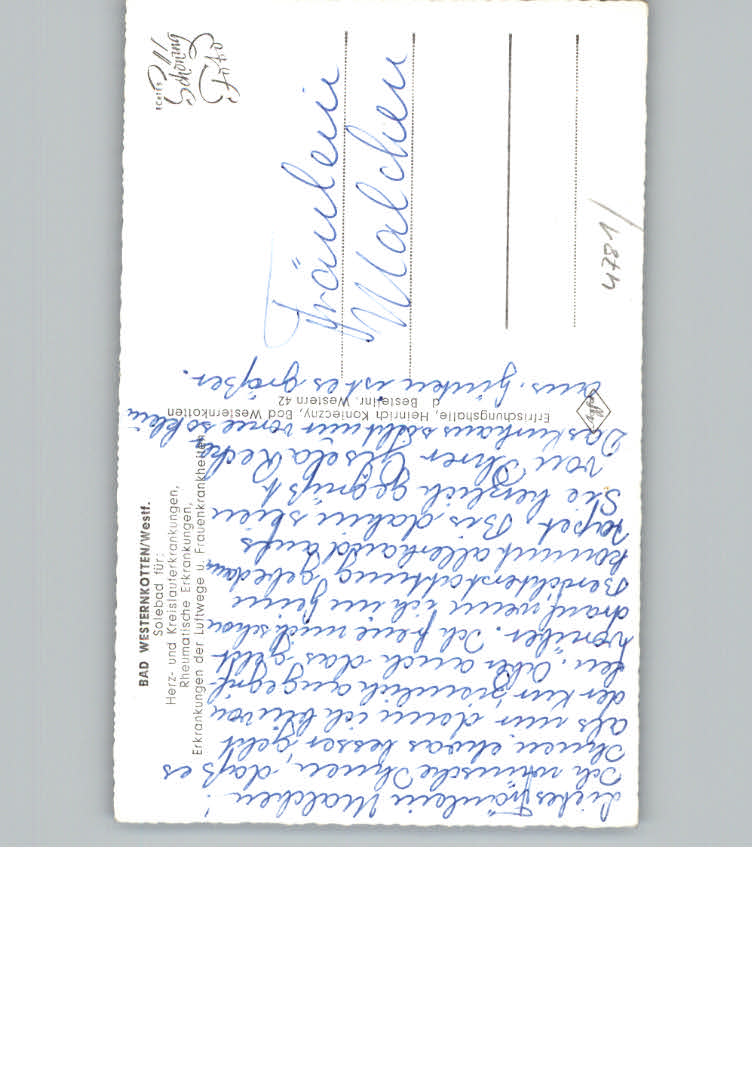 BAD WESTERNKOTTEN/Westf.
Solebad für:
Herz- und Kreislauferkrankungen,
Rheumatische Erkrankungen,
Erkrankungen der Luftwege u. Frauenkrankheiten
Liebes Fräulein Malchen!
Ich wünsche Ihnen, daß es
Ihnen etwas besser geht
als mir denn ich bin von
der Kur ziemlich angegrif-
fen. Aber auch das geht
vorüber. Ich freue mich schon
drauf wenn ich in Ihrer
Behandlung gehe dann
kommt allerhand aufs
Tapet. Bis dahin seien
Sie herzlich gegrüßt
von Ihrer Gisela
Das Kurhaus sieht nur vorne so klein
aus, hinten ist es größer.
Erfrischungshalle, Heinrich Konieczny, Bad Westernkotten
Bestellnr. Western 42
Fräulein
Malchen
Echtes
Schöning
Foto
4781/